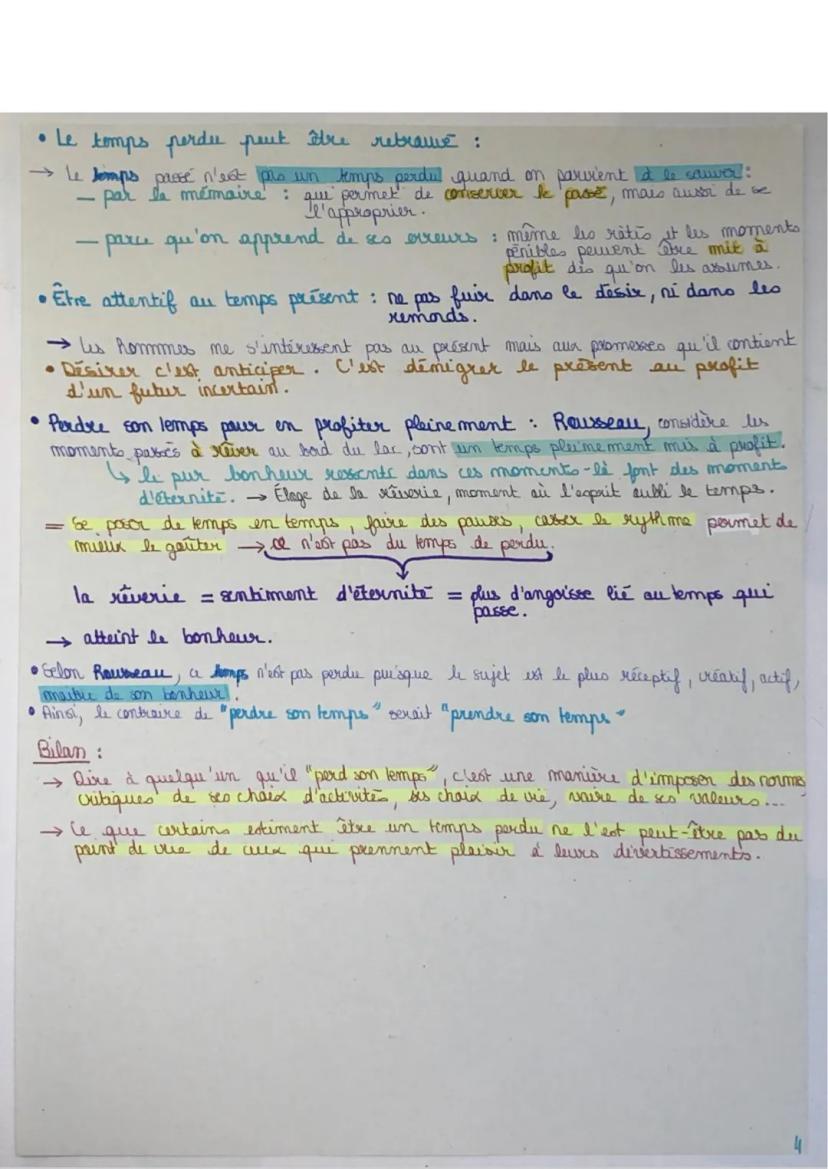 • Le temps perdu peut être retrouvé :
→ Le temps passé n'est pas un temps perdu quand on parvient à le sauver :
— par la mémoire : qui permet de conserver le passé, mais aussi de se
l'approprier.
— parce qu'on apprend de ses erreurs : même les ratés et les moments
pénibles peuvent être mit à
profit dès qu'on les assumes.
• Être attentif au temps présent : ne pas fuir dans le désir, ni dans les
remords.
→ Les hommmes ne s'intéressent pas au présent mais aux promesses qu'il contient
• Désirer c'est anticiper. C'est démigrer le présent au profit
d'un futur incertain.
• Perdre son temps pour en profiter pleinement : Rousseau, considère les
moments passés à rêver au bord du lac, sont un temps pleinement mis à profit.
↳ le pur bonheur ressenti dans ces moments-là font des moments
d'éternité. → Éloge de la rêverie, moment où l'esprit oubli le temps.
= Se poser de temps en temps, faire des pauses, casser le rythme permet de
mieux le goûter → ce n'est pas du temps de perdu.
la rêverie = sentiment d'éternité = plus d'angoisse lié au temps qui
passe.
→ atteint le bonheur.
• Selon Rousseau, ce temps n'est pas perdu puisque le sujet est le plus réceptif, créatif, actif,
maître de son bonheur.
• Ainsi, le contraire de "perdre son temps" serait "prendre son temps"
Bilan :
→ Dire à quelqu'un qu'il "perd son temps", c'est une manière d'imposer des normes
critiques de ses choix d'activités, ses choix de vie, voire de ses valeurs...
→ Ce que certains estiment être un temps perdu ne l'est peut-être pas du
point de vue de ceux qui prennent plaisir à leurs divertissements.
4